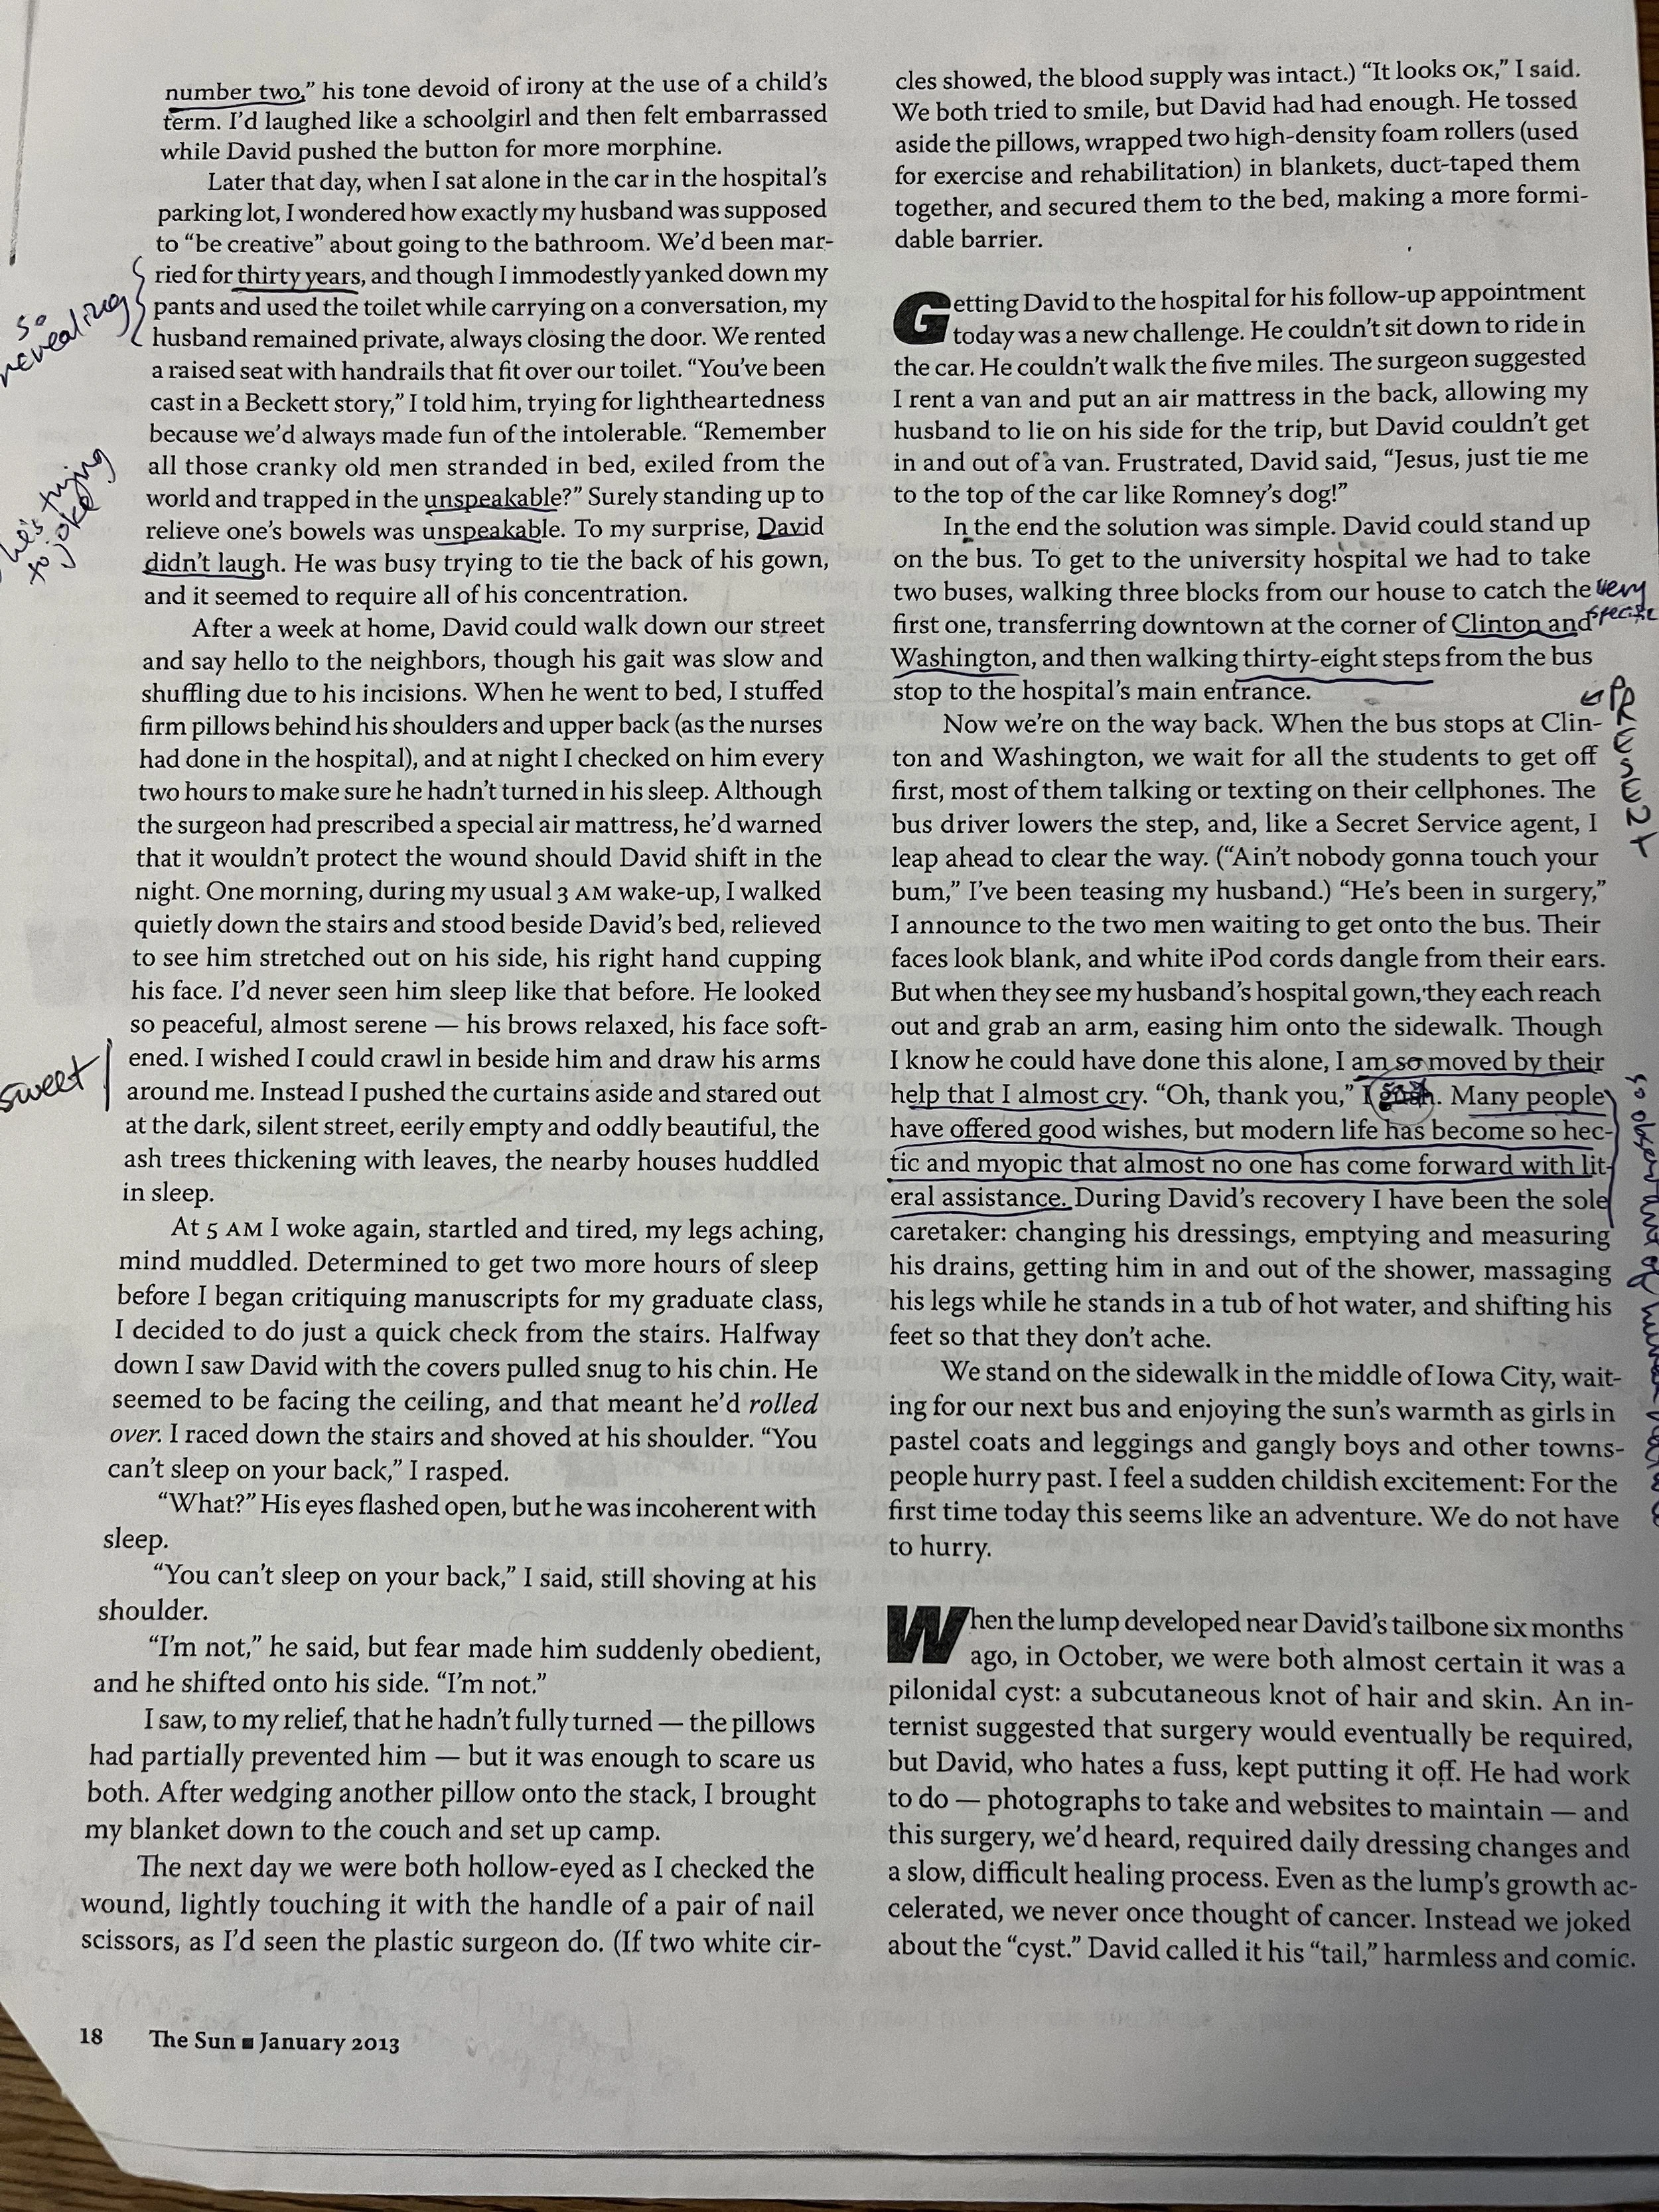 number two," his tone devoid of irony at the use of a child's
term. I'd laughed like a schoolgirl and then felt embarrassed
while David pushed the button for more morphine.
Later that day, when I sat alone in the car in the hospital's
parking lot, I wondered how exactly my husband was supposed
to "be creative" about going to the bathroom. We'd been mar-
ried for thirty years, and though I immodestly yanked down my
pants and used the toilet while carrying on a conversation, my
husband remained private, always closing the door. We rented
a raised seat with handrails that fit over our toilet. "You've been
cast in a Beckett story," I told him, trying for lightheartedness
because we'd always made fun of the intolerable. "Remember
all those cranky old men stranded in bed, exiled from the
world and trapped in the unspeakable?" Surely standing up to
relieve one's bowels was unspeakable. To my surprise, David
didn't laugh. He was busy trying to tie the back of his gown,
and it seemed to require all of his concentration.
After a week at home, David could walk down our street
and say hello to the neighbors, though his gait was slow and
shuffling due to his incisions. When he went to bed, I stuffed
firm pillows behind his shoulders and upper back (as the nurses
had done in the hospital), and at night I checked on him every
two hours to make sure he hadn't turned in his sleep. Although
the surgeon had prescribed a special air mattress, he'd warned
that it wouldn't protect the wound should David shift in the
night. One morning, during my usual 3 AM wake-up, I walked
quietly down the stairs and stood beside David's bed, relieved
to see him stretched out on his side, his right hand cupping
his face. I'd never seen him sleep like that before. He looked
so peaceful, almost serene — his brows relaxed, his face soft-
ened. I wished I could crawl in beside him and draw his arms
around me. Instead I pushed the curtains aside and stared out
at the dark, silent street, eerily empty and oddly beautiful, the
ash trees thickening with leaves, the nearby houses huddled
in sleep.
At 5 AM I woke again, startled and tired, my legs aching,
mind muddled. Determined to get two more hours of sleep
before I began critiquing manuscripts for my graduate class,
I decided to do just a quick check from the stairs. Halfway
down I saw David with the covers pulled snug to his chin. He
seemed to be facing the ceiling, and that meant he'd rolled
over. I raced down the stairs and shoved at his shoulder. "You
can't sleep on your back," I rasped.
"What?" His eyes flashed open, but he was incoherent with
sleep.
"You can't sleep on your back," I said, still shoving at his
shoulder.
"I'm not," he said, but fear made him suddenly obedient,
and he shifted onto his side. "I'm not."
I saw, to my relief, that he hadn't fully turned — the pillows
had partially prevented him — but it was enough to scare us
both. After wedging another pillow onto the stack, I brought
my blanket down to the couch and set up camp.
The next day we were both hollow-eyed as I checked the
wound, lightly touching it with the handle of a pair of nail
scissors, as I'd seen the plastic surgeon do. (If two white cir-
so
revealing
he's trying
to joke
sweet
cles showed, the blood supply was intact.) "It looks OK," I said.
We both tried to smile, but David had had enough. He tossed
aside the pillows, wrapped two high-density foam rollers (used
for exercise and rehabilitation) in blankets, duct-taped them
together, and secured them to the bed, making a more formi-
dable barrier.
Getting David to the hospital for his follow-up appointment
today was a new challenge. He couldn't sit down to ride in
the car. He couldn't walk the five miles. The surgeon suggested
I rent a van and put an air mattress in the back, allowing my
husband to lie on his side for the trip, but David couldn't get
in and out of a van. Frustrated, David said, "Jesus, just tie me
to the top of the car like Romney's dog!"
In the end the solution was simple. David could stand up
on the bus. To get to the university hospital we had to take
two buses, walking three blocks from our house to catch the
first one, transferring downtown at the corner of Clinton and
Washington, and then walking thirty-eight steps from the bus
stop to the hospital's main entrance.
Now we're on the way back. When the bus stops at Clin-
ton and Washington, we wait for all the students to get off
first, most of them talking or texting on their cellphones. The
bus driver lowers the step, and, like a Secret Service agent, I
leap ahead to clear the way. ("Ain't nobody gonna touch your
bum," I've been teasing my husband.) "He's been in surgery,"
I announce to the two men waiting to get onto the bus. Their
faces look blank, and white iPod cords dangle from their ears.
But when they see my husband's hospital gown, they each reach
out and grab an arm, easing him onto the sidewalk. Though
I know he could have done this alone, I am so moved by their
help that I almost cry. "Oh, thank you," I gush. Many people
have offered good wishes, but modern life has become so hec-
tic and myopic that almost no one has come forward with lit-
eral assistance. During David's recovery I have been the sole
caretaker: changing his dressings, emptying and measuring
his drains, getting him in and out of the shower, massaging
his legs while he stands in a tub of hot water, and shifting his
feet so that they don't ache.
We stand on the sidewalk in the middle of Iowa City, wait-
ing for our next bus and enjoying the sun's warmth as girls in
pastel coats and leggings and gangly boys and other towns-
people hurry past. I feel a sudden childish excitement: For the
first time today this seems like an adventure. We do not have
to hurry.
When the lump developed near David's tailbone six months
ago, in October, we were both almost certain it was a
pilonidal cyst: a subcutaneous knot of hair and skin. An in-
ternist suggested that surgery would eventually be required,
but David, who hates a fuss, kept putting it off. He had work
to do — photographs to take and websites to maintain — and
this surgery, we'd heard, required daily dressing changes and
a slow, difficult healing process. Even as the lump's growth ac-
celerated, we never once thought of cancer. Instead we joked
about the "cyst." David called it his "tail," harmless and comic.
very
specific
PRESENT
so observant of human
18 The Sun ■ January 2013